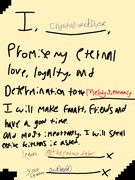 I, CrystalizedDusk
Promise my eternal
love, loyalty and
Determination to the Melody Supremacy
I will make fanart, friends and
have a good time.
and most importantly, I will steal
entire kitchens if asked.